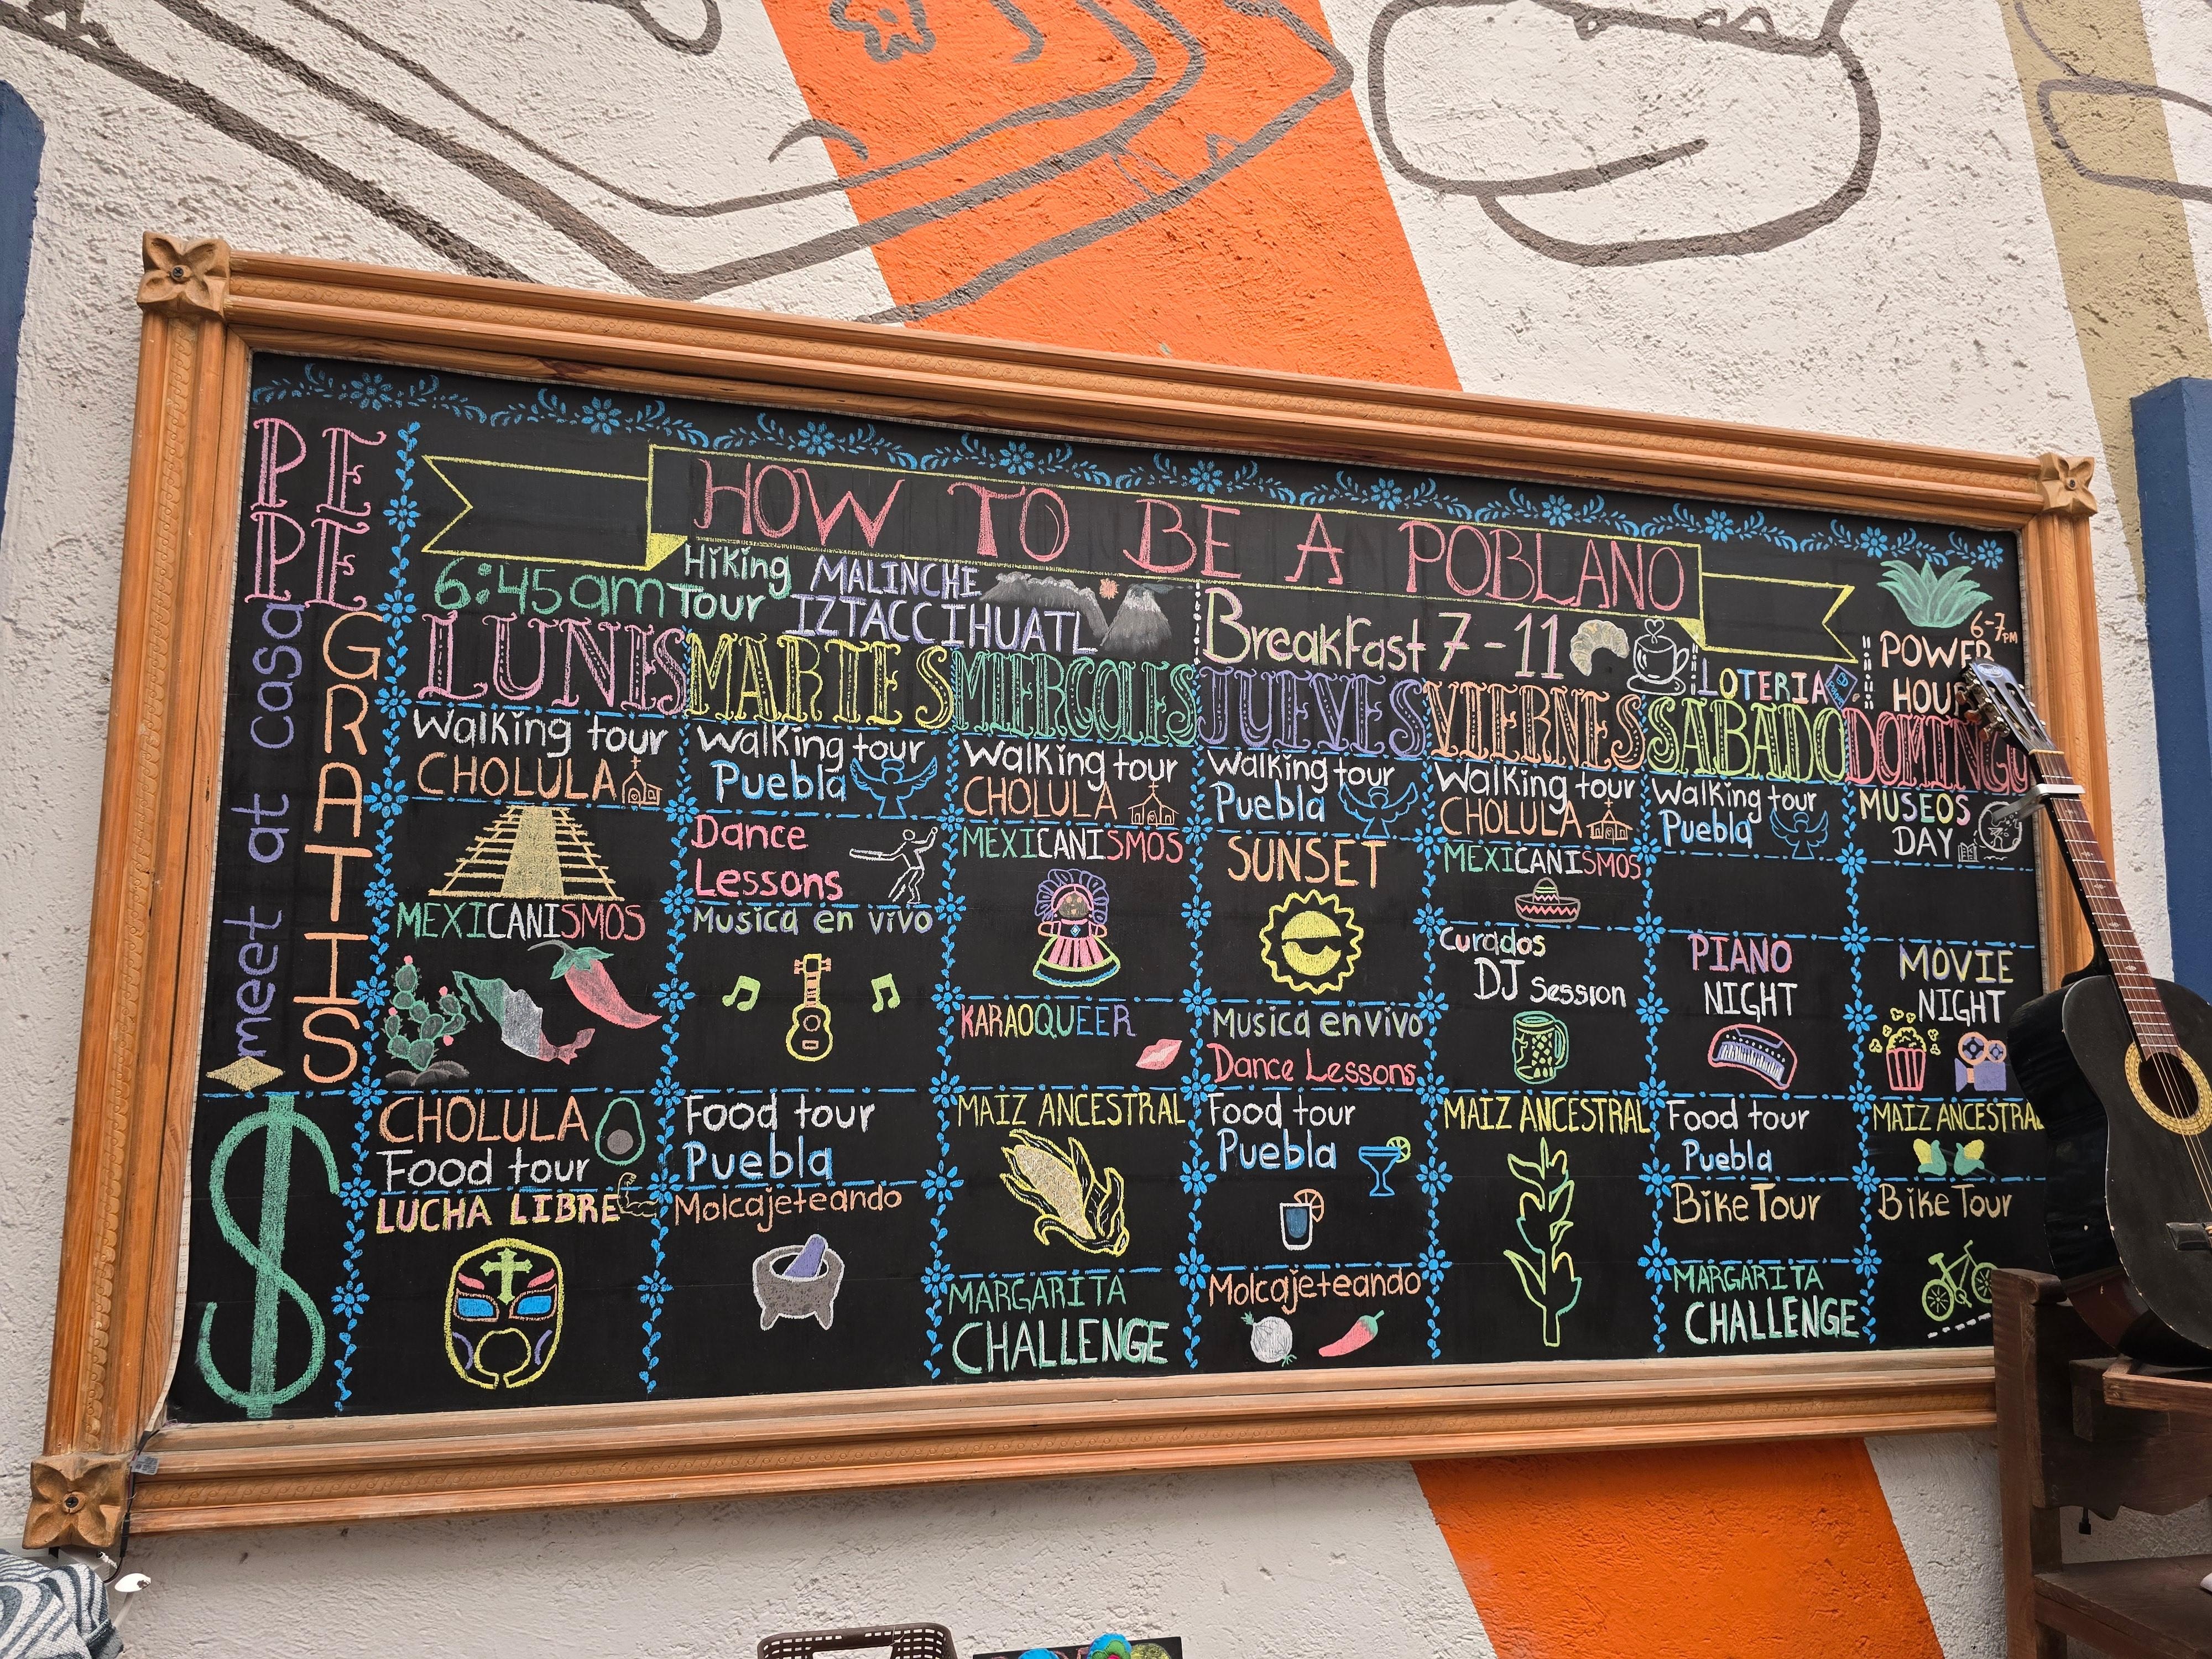 PE
PE
GRATIS
meet at casa
$
HOW TO BE A POBLANO
6:45am Hiking Tour MALINCHE
IZTACCIHUATL
Breakfast 7-11
LOTERIA
6-7PM
POWER
HOU
LUNIS
Walking tour
CHOLULA
MEXICANISMOS
CHOLULA
Food tour
LUCHA LIBRE
MARTES
Walking tour
Puebla
Dance
Lessons
Musica en vivo
Food tour
Puebla
Molcajeteando
MIERCOLES
Walking tour
CHOLULA
MEXICANISMOS
KARAOQUEER
MAIZ ANCESTRAL
MARGARITA
CHALLENGE
JUEVES
Walking tour
Puebla
SUNSET
Musica en vivo
Dance Lessons
Food tour
Puebla
Molcajeteando
VIERNES
Walking tour
CHOLULA
MEXICANISMOS
Curados
DJ Session
MAIZ ANCESTRAL
SABADO
Walking tour
Puebla
PIANO
NIGHT
Food tour
Puebla
Bike Tour
MARGARITA
CHALLENGE
DOMINGO
MUSEOS
DAY
MOVIE
NIGHT
MAIZ ANCESTRAL
Bike Tour